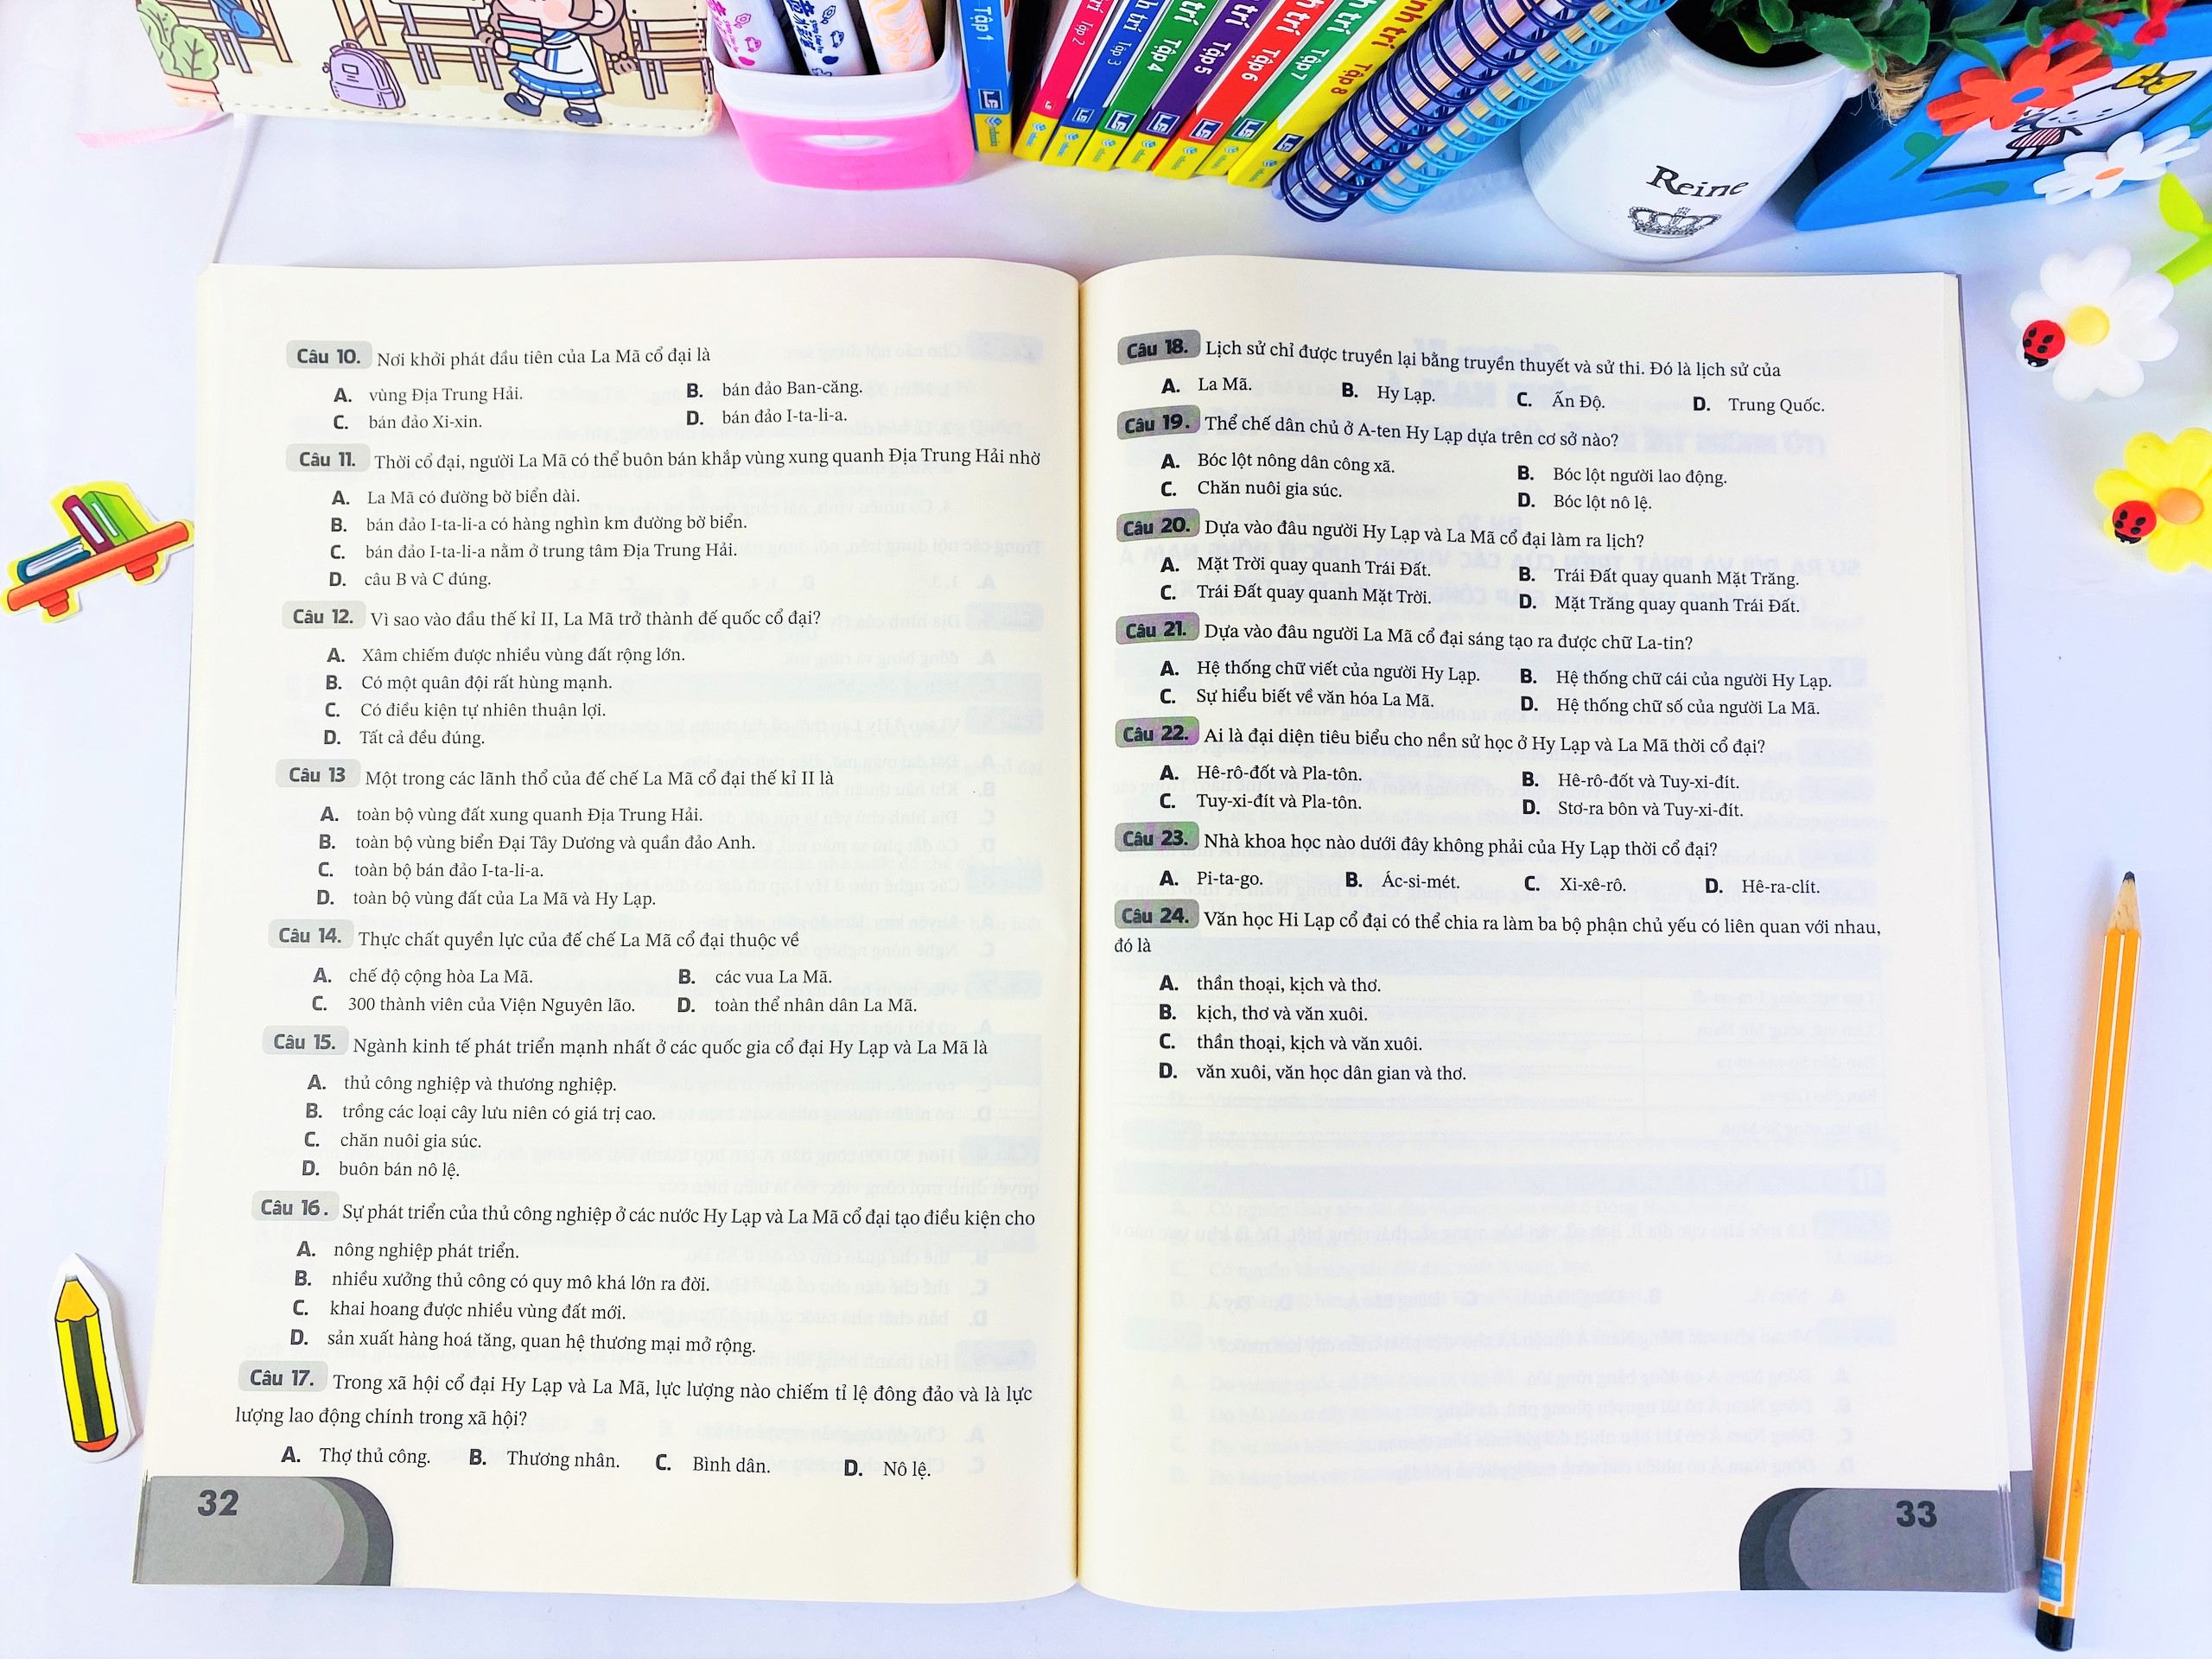 Tập 1
Tập 2
Tập 3
Tập 4
Tập 5
Tập 6
Tập 7
Tập 8
Reine
Câu 10. Nơi khởi phát đầu tiên của La Mã cổ đại là
A. vùng Địa Trung Hải. B. bán đảo Ban-căng.
C. bán đảo Xi-xin. D. bán đảo I-ta-li-a.
Câu 11. Thời cổ đại, người La Mã có thể buôn bán khắp vùng xung quanh Địa Trung Hải nhờ
A. La Mã có đường bờ biển dài.
B. bán đảo I-ta-li-a có hàng nghìn km đường bờ biển.
C. bán đảo I-ta-li-a nằm ở trung tâm Địa Trung Hải.
D. câu B và C đúng.
Câu 12. Vì sao vào đầu thế kỉ II, La Mã trở thành đế quốc cổ đại?
A. Xâm chiếm được nhiều vùng đất rộng lớn.
B. Có một quân đội rất hùng mạnh.
C. Có điều kiện tự nhiên thuận lợi.
D. Tất cả đều đúng.
Câu 13 Một trong các lãnh thổ của đế chế La Mã cổ đại thế kỉ II là
A. toàn bộ vùng đất xung quanh Địa Trung Hải.
B. toàn bộ vùng biển Đại Tây Dương và quần đảo Anh.
C. toàn bộ bán đảo I-ta-li-a.
D. toàn bộ vùng đất của La Mã và Hy Lạp.
Câu 14. Thực chất quyền lực của đế chế La Mã cổ đại thuộc về
A. chế độ cộng hòa La Mã. B. các vua La Mã.
C. 300 thành viên của Viện Nguyên lão. D. toàn thể nhân dân La Mã.
Câu 15. Ngành kinh tế phát triển mạnh nhất ở các quốc gia cổ đại Hy Lạp và La Mã là
A. thủ công nghiệp và thương nghiệp.
B. trồng các loại cây lưu niên có giá trị cao.
C. chăn nuôi gia súc.
D. buôn bán nô lệ.
Câu 16. Sự phát triển của thủ công nghiệp ở các nước Hy Lạp và La Mã cổ đại tạo điều kiện cho
A. nông nghiệp phát triển.
B. nhiều xưởng thủ công có quy mô khá lớn ra đời.
C. khai hoang được nhiều vùng đất mới.
D. sản xuất hàng hoá tăng, quan hệ thương mại mở rộng.
Câu 17. Trong xã hội cổ đại Hy Lạp và La Mã, lực lượng nào chiếm tỉ lệ đông đảo và là lực
lượng lao động chính trong xã hội?
A. Thợ thủ công. B. Thương nhân. C. Bình dân. D. Nô lệ.
32
Câu 18. Lịch sử chỉ được truyền lại bằng truyền thuyết và sử thi. Đó là lịch sử của
A. La Mã. B. Hy Lạp. C. Ấn Độ. D. Trung Quốc.
Câu 19. Thể chế dân chủ ở A-ten Hy Lạp dựa trên cơ sở nào?
A. Bóc lột nông dân công xã. B. Bóc lột người lao động.
C. Chăn nuôi gia súc. D. Bóc lột nô lệ.
Câu 20. Dựa vào đâu người Hy Lạp và La Mã cổ đại làm ra lịch?
A. Mặt Trời quay quanh Trái Đất. B. Trái Đất quay quanh Mặt Trăng.
C. Trái Đất quay quanh Mặt Trời. D. Mặt Trăng quay quanh Trái Đất.
Câu 21. Dựa vào đâu người La Mã cổ đại sáng tạo ra được chữ La-tin?
A. Hệ thống chữ viết của người Hy Lạp. B. Hệ thống chữ cái của người Hy Lạp.
C. Sự hiểu biết về văn hóa La Mã. D. Hệ thống chữ số của người La Mã.
Câu 22. Ai là đại diện tiêu biểu cho nền sử học ở Hy Lạp và La Mã thời cổ đại?
A. Hê-rô-đốt và Pla-tôn. B. Hê-rô-đốt và Tuy-xi-đít.
C. Tuy-xi-đít và Pla-tôn. D. Stơ-ra bôn và Tuy-xi-đít.
Câu 23. Nhà khoa học nào dưới đây không phải của Hy Lạp thời cổ đại?
A. Pi-ta-go. B. Ác-si-mét. C. Xi-xê-rô. D. Hê-ra-clít.
Câu 24. Văn học Hi Lạp cổ đại có thể chia ra làm ba bộ phận chủ yếu có liên quan với nhau,
đó là
A. thần thoại, kịch và thơ.
B. kịch, thơ và văn xuôi.
C. thần thoại, kịch và văn xuôi.
D. văn xuôi, văn học dân gian và thơ.
33